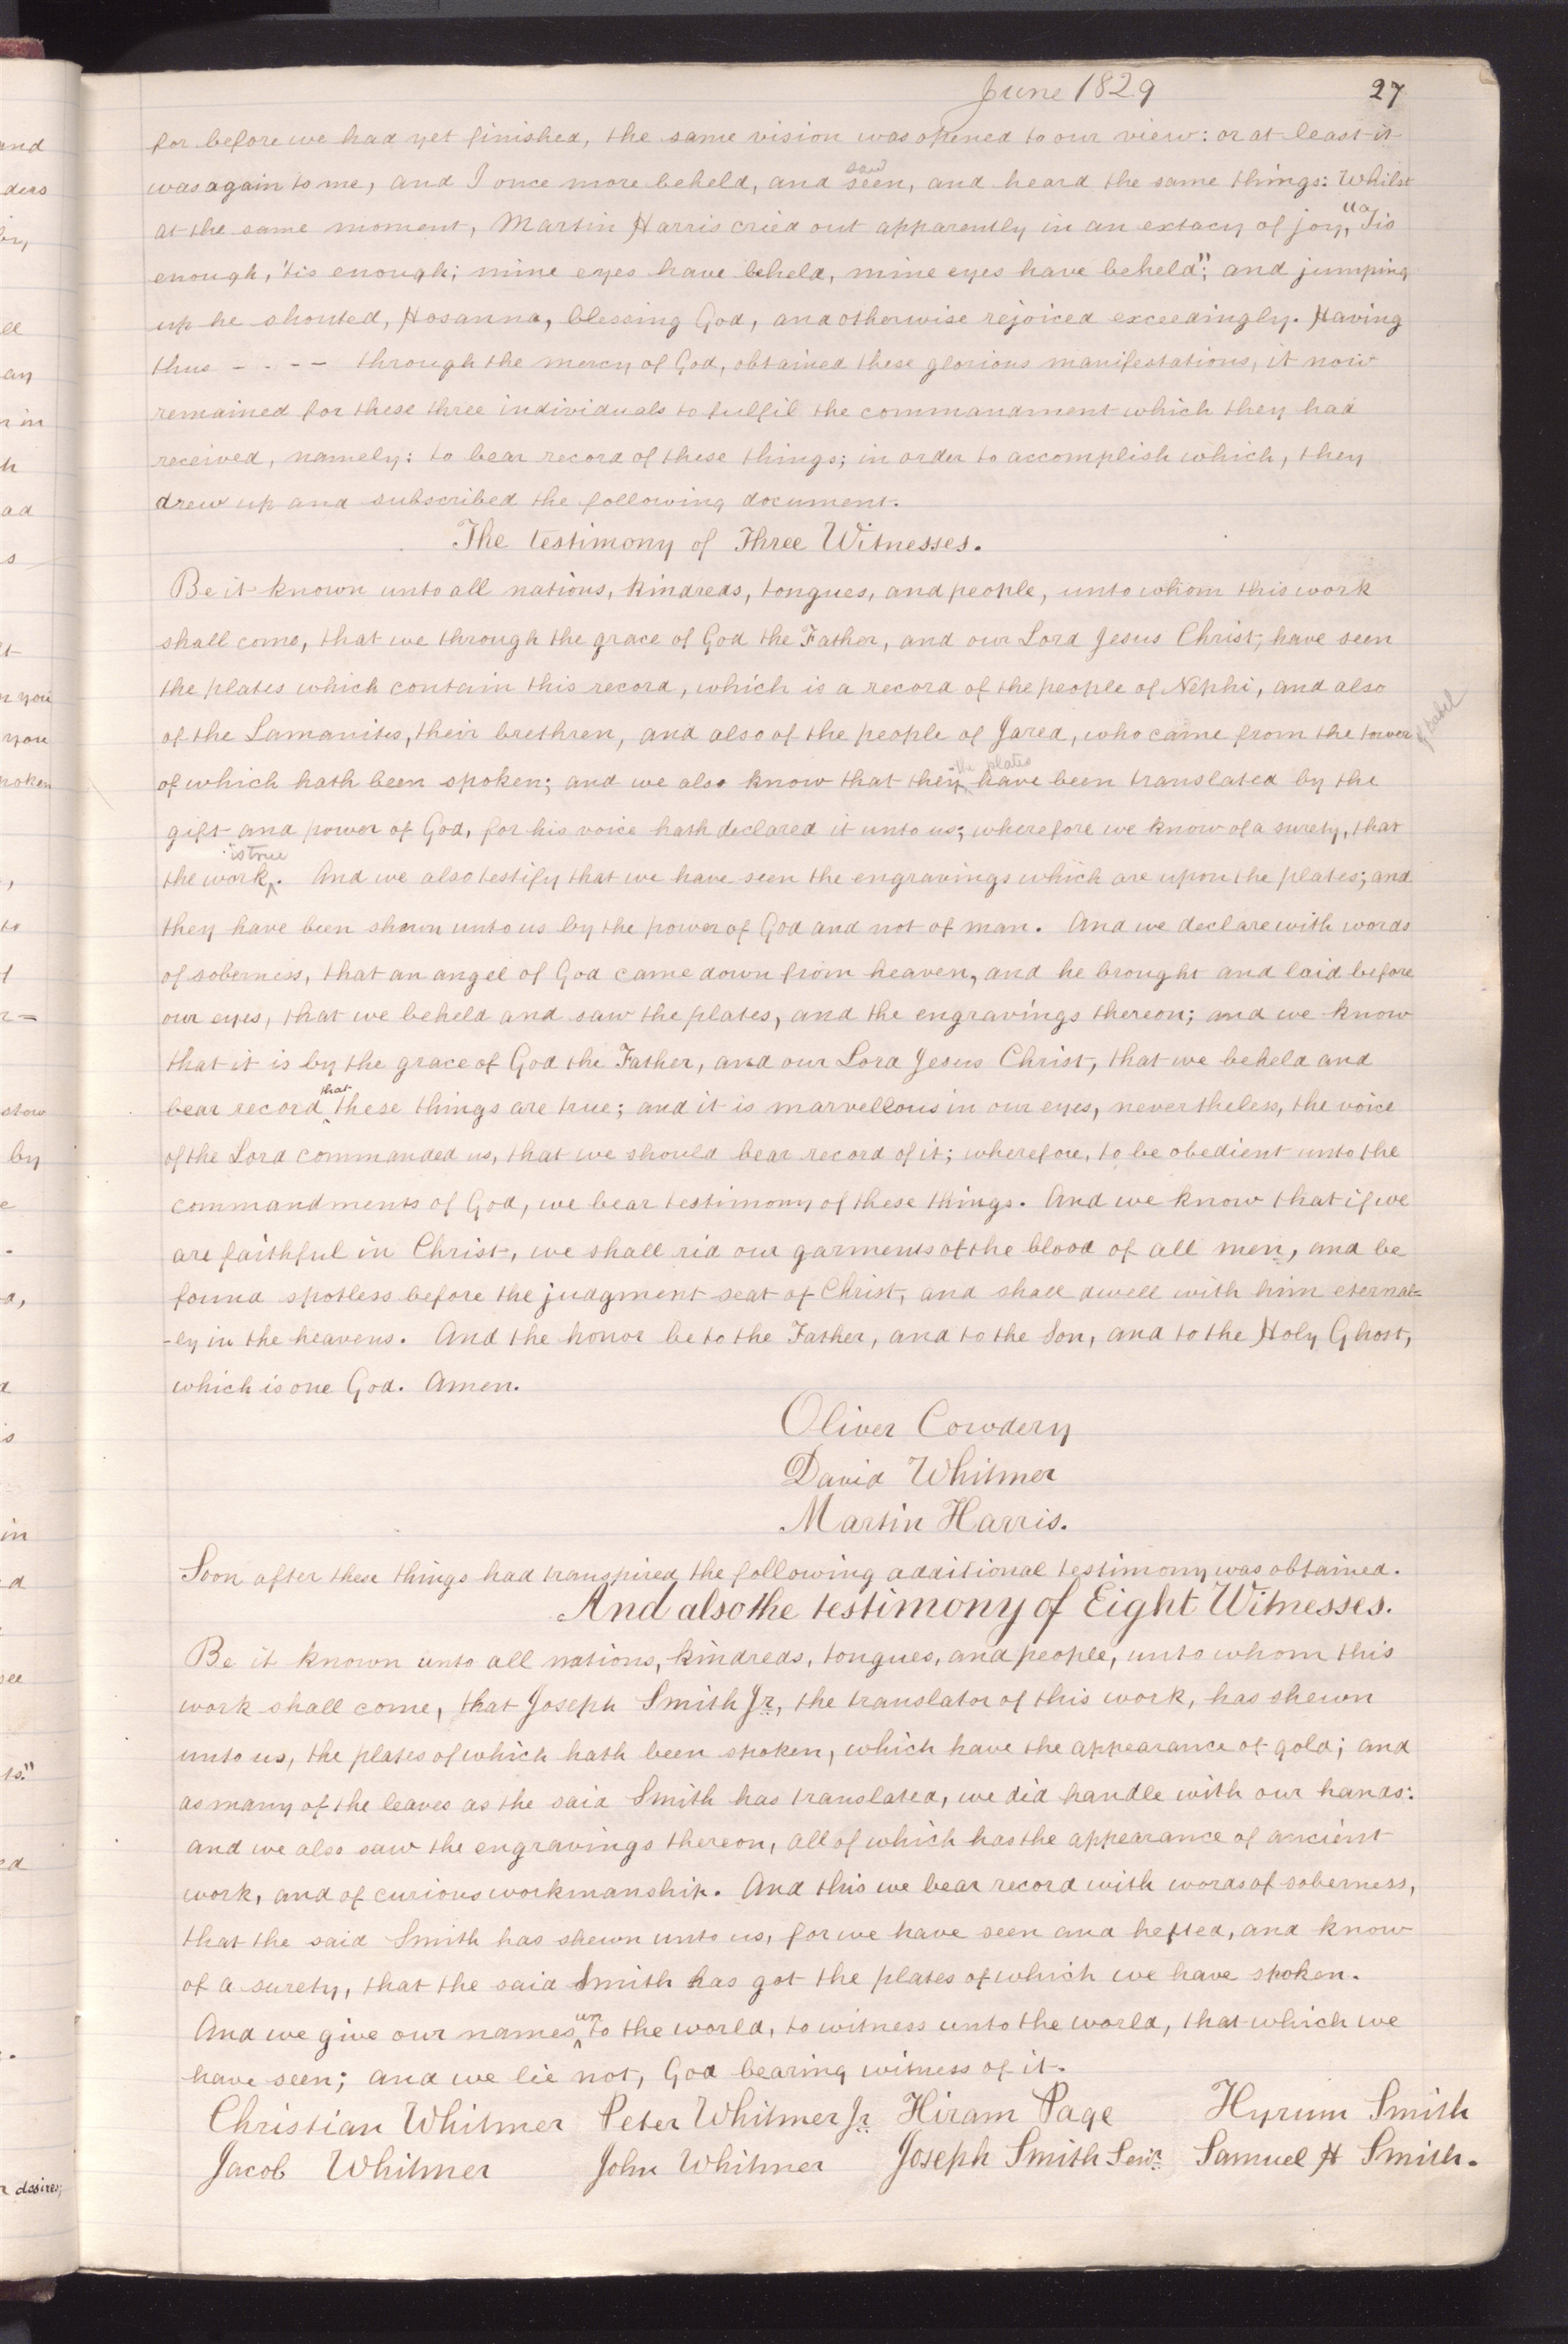 June 1829 27
for before we had yet finished, the same vision was opened to our view: or at least it
was again to me, and I once more beheld, and seen, saw and heard the same things: Whilst
at the same moment, Martin Harris cried out apparently in an extacy of joy, "Tis
enough, 'tis enough; mine eyes have beheld, mine eyes have beheld"; and jumping
up he shouted, Hosanna, blessing God, and otherwise rejoiced exceedingly. Having
thus - - - - through the mercy of God, obtained these glorious manifestations, it now
remained for these three individuals to fulfil the commandment which they had
received, namely: to bear record of these things; in order to accomplish which, they
drew up and subscribed the following document.
The testimony of Three Witnesses.
Be it known unto all nations, kindreds, tongues, and people, unto whom this work
shall come, that we through the grace of God the Father, and our Lord Jesus Christ, have seen
the plates which contain this record, which is a record of the people of Nephi, and also
of the Lamanites, their brethren, and also of the people of Jared, who came from the tower of babel
of which hath been spoken; and we also know that they, the plates have been translated by the
gift and power of God, for his voice hath declared it unto us; wherefore we know of a surety, that
the work is true. And we also testify that we have seen the engravings which are upon the plates; and
they have been shown unto us by the power of God and not of man. And we declare with words
of soberness, that an angel of God came down from heaven, and he brought and laid before
our eyes, that we beheld and saw the plates, and the engravings thereon; and we know
that it is by the grace of God the Father, and our Lord Jesus Christ, that we beheld and
bear record that these things are true; and it is marvellous in our eyes, nevertheless, the voice
of the Lord commanded us, that we should bear record of it; wherefore, to be obedient unto the
commandments of God, we bear testimony of these things. And we know that if we
are faithful in Christ, we shall rid our garments of the blood of all men, and be
found spotless before the judgment seat of Christ, and shall dwell with him eternal=
-ly in the heavens. And the honor be to the Father, and to the Son, and to the Holy Ghost,
which is one God. Amen.
Oliver Cowdery
David Whitmer
Martin Harris.
Soon after these things had transpired the following additional testimony was obtained.
And also the testimony of Eight Witnesses.
Be it known unto all nations, kindreds, tongues, and people, unto whom this
work shall come, that Joseph Smith Jr, the translator of this work, has shewn
unto us, the plates of which hath been spoken, which have the appearance of gold; and
as many of the leaves as the said Smith has translated, we did handle with our hands:
and we also saw the engravings thereon, all of which has the appearance of ancient
work, and of curious workmanship. And this we bear record with words of soberness,
that the said Smith has shewn unto us, for we have seen and hefted, and know
of a surety, that the said Smith has got the plates of which we have spoken.
And we give our names unto the world, to witness unto the world, that which we
have seen; and we lie not, God bearing witness of it.
Christian Whitmer Peter Whitmer Jr Hiram Page Hyrum Smith
Jacob Whitmer John Whitmer Joseph Smith Senr Samuel H Smith.